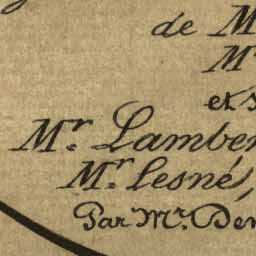 de M
Mr
et s
Mr. Lamber
Mr. Lesné,
Par Mr. Den